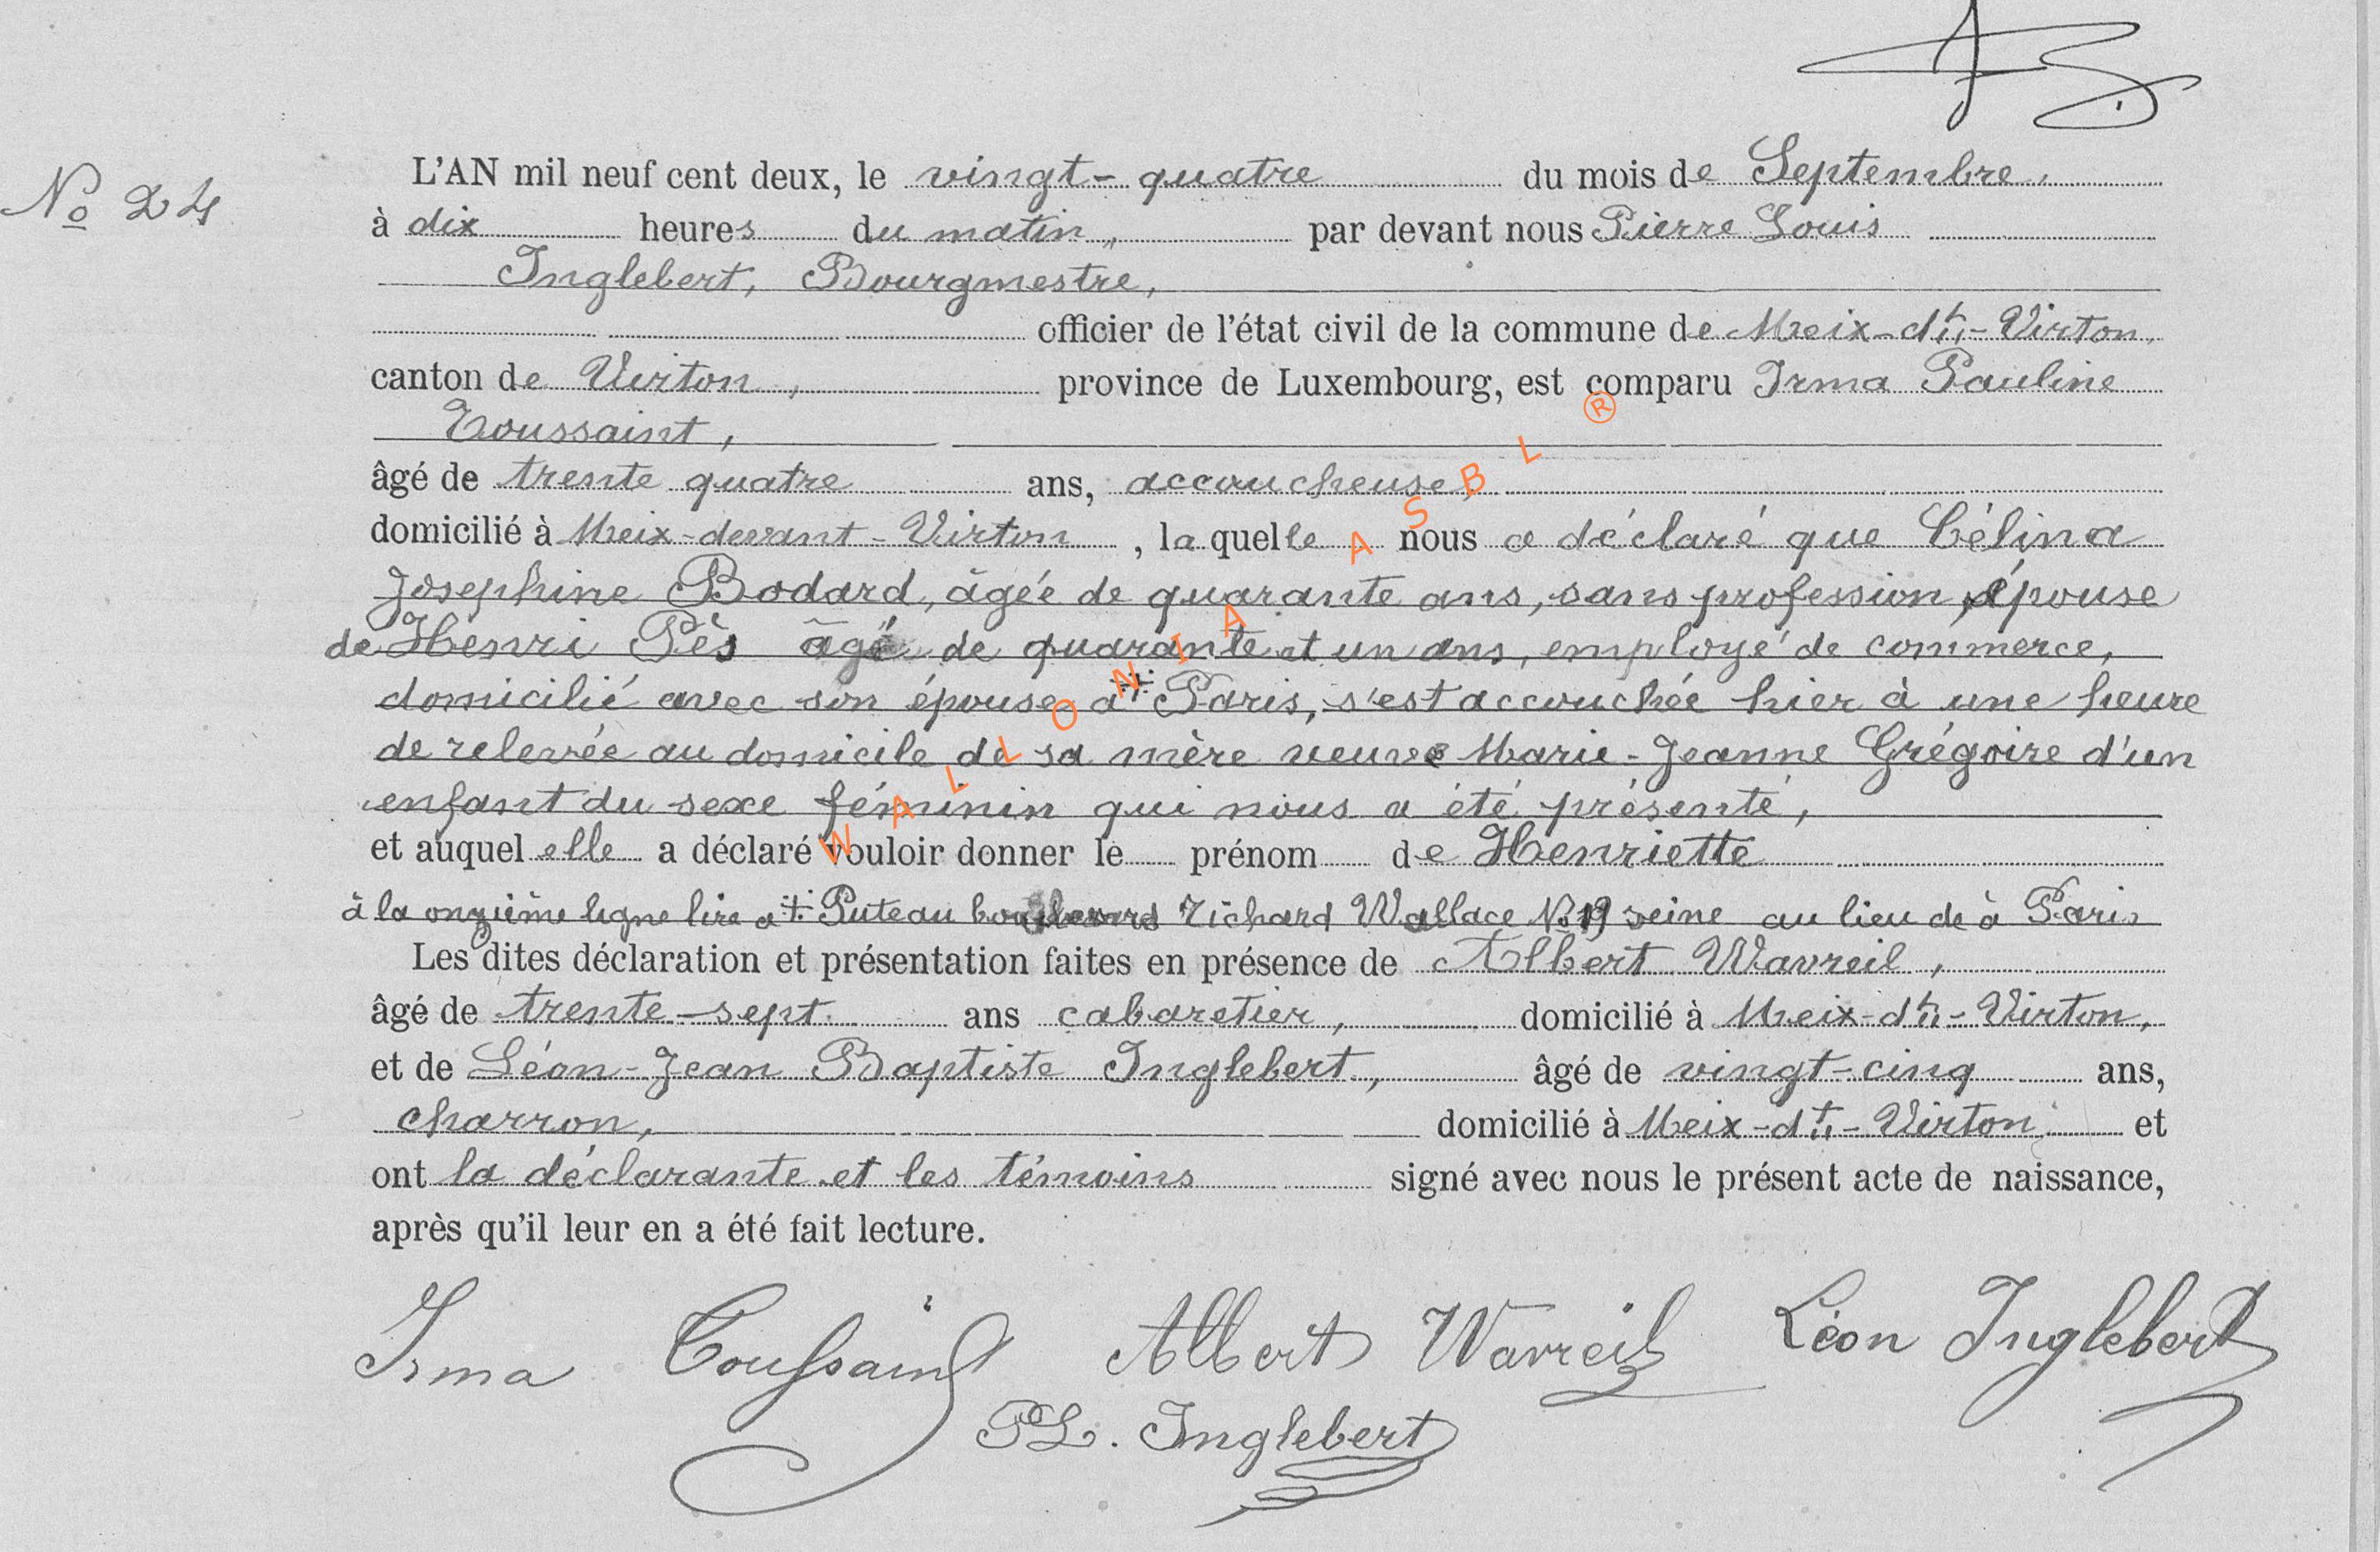 No 24
L'AN mil neuf cent deux, le vingt-quatre du mois de Septembre,
à dix heures du matin, par devant nous Pierre Louis
Inglebert, Bourgmestre,
officier de l'état civil de la commune de Meix-dt-Virton,
canton de Virton, province de Luxembourg, est comparu Irma Pauline
Toussaint,
âgé de trente quatre ans, accoucheuse,
domicilié à Meix-devant-Virton, laquelle nous a déclaré que Célina
Josephine Bodard, âgée de quarante ans, sans profession, épouse
de Henri Pès âgé de quarante et un ans, employé de commerce,
domicilié avec son épouse à Paris, s'est accouchée hier à une heure
de relevée au domicile de sa mère veuve Marie-Jeanne Grégoire d'un
enfant du sexe féminin qui nous a été présenté,
et auquel elle a déclaré vouloir donner le prénom de Henriette
à la onzième ligne lire à Puteau boulevard Richard Wallace No 19 seine au lieu de à Paris
Les dites déclaration et présentation faites en présence de Albert Wavreil,
âgé de trente-sept ans cabaretier, domicilié à Meix-dt-Virton,
et de Léon-Jean Baptiste Inglebert, âgé de vingt-cinq ans,
charron, domicilié à Meix-dt-Virton, et
ont la déclarante et les témoins signé avec nous le présent acte de naissance,
après qu'il leur en a été fait lecture.
Irma Toussaint Albert Wavreil Léon Inglebert
PL. Inglebert
WALLONIA ASBL ®